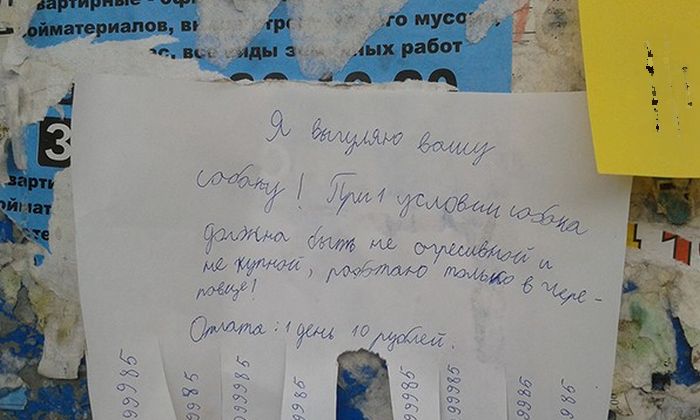 вартирные - оф
ойматериалов, вы
го мусо
с, все виды зе
ных работ
З
варти
оймат
Я выгуляю вашу
собаку! При 1 условии собака
должна быть не агресивной и
не крупной, работаю только в Чере-
повце!
Оплата: 1 день 10 рублей.
99985
99985
99985
99985
99985
99985
99985